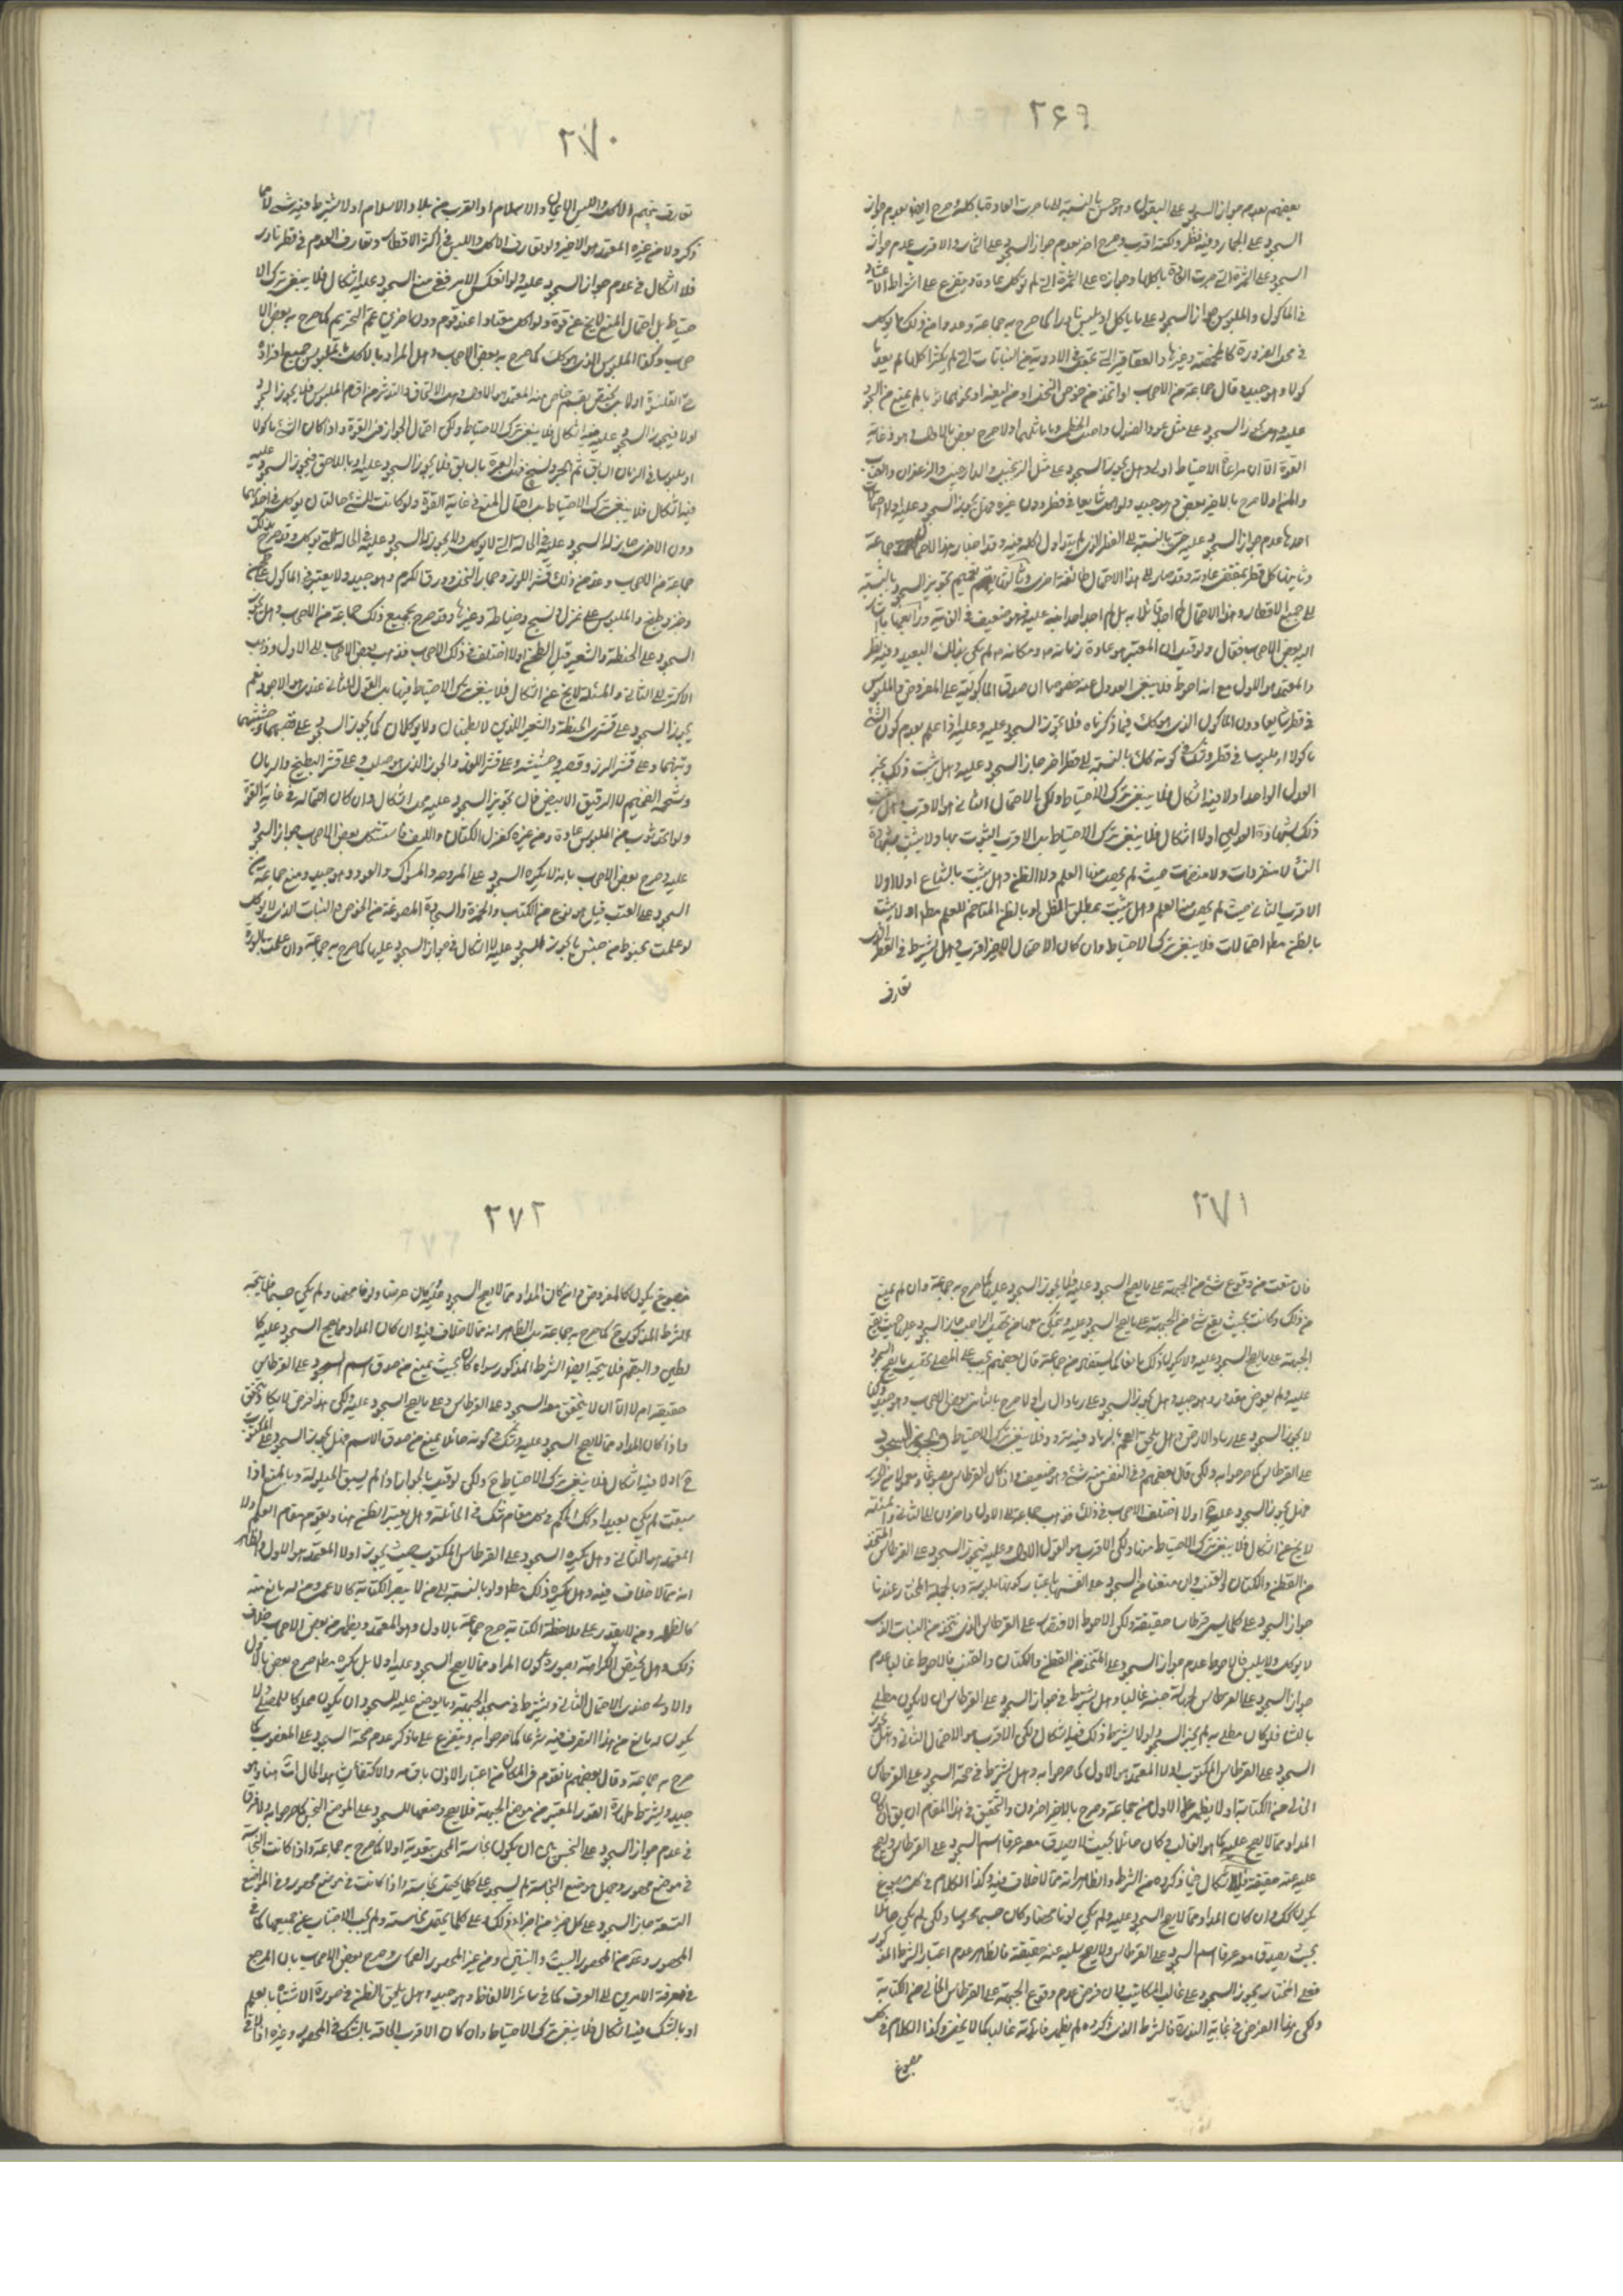 ٢٦٩
بعضهم بعدم جواز السجود على البقول وهو حسن بالنسبة الى ما جرت العادة باكله وصرح ايضا بعدم جواز
السجود على الجمار وفيه نظر ولكنه اقرب وصرح اخر بعدم جواز السجود على الثمار والاقرب عدم جواز
السجود على الثمرة التى جرت العادة باكلها وجوازه على الثمرة التى لم توكل عادة ويتفرع على اشتراط الاعتياد
فى الماكول والملبوس جواز السجود على ما ياكل او يلبس نادرا كما صرح به جماعة وعدوا من ذلك ما يوكل
فى محل الضرورة كالمخمصة وغيرها والعقاقير التى تجعل فى الادوية من النباتات التى لم يكثر اكلها لم يعد ما
كولا وهو جيد وقال جماعة من الاصحاب لو اتخذ من خوص النخل او من ليفه او نحوهما لم يمنع من السجود
عليه وهل يجوز السجود على مثل عود الصندل واصل الحنظل وما ماثلهما او لا صرح بعض بالاول وهو فى غاية
القوة الا ان مراعاة الاحتياط اولى وهل يجوز السجود على مثل الزنجبيل والدارچينى والزعفران
او لا صرح بالاخير بعض وهو جيد ولو اكل شايعا فى قطر دون غيره فهل يجوز السجود عليه او لا احتمالات
احدها عدم جواز السجود عليه حتى بالنسبة الى القطر الذى لم يتداول اكله فيه وقد اختار هذا الاحتمال جماعة
وثانيها كل قطر بمقتضى عادته وقد صار الى هذا الاحتمال طائفة اخرى وثالثها تعميم تجويز السجود بالنسبة
الى جميع الاقطار وهذا الاحتمال لم اجد قائلا به بل لم اجد احدا نبه عليه فهو ضعيف فى الغاية ورابعها
اليه بعض الاصحاب فقال ولو قيل ان المعتبر هو عادة زمانه ومكانه لم يكن بذلك البعيد وفيه نظر
والمعتمد هو الاول مع انه احوط فلا ينبغى العدول عنه خصوصا ان صدق الماكولية على المفروض والملبوس
فى قطر شايعا دون الماكول الذى هو كك فيما ذكرناه فلا يجوز السجود عليه وعليه اذا علم بعدم كون الشئ
ماكولا او ملبوسا فى قطر وشك فى كونه كك بالنسبة الى قطر اخر جاز السجود عليه وهل يثبت ذلك بخبر
العدل الواحد او لا فيه اشكال فلا ينبغى ترك الاحتياط ولكن الاحتمال الثانى هو الاقرب وهل يثبت
ذلك بشهادة العدلين او لا اشكال فلا ينبغى ترك الاحتياط بل الاقرب الثبوت بها ولا يثبت بشهادة
النساء لا منفردات ولا منضمات حيث لم يحصل منها العلم ولا الظن وهل يثبت بالشياع او لا
الاقرب الثانى حيث لم يحصل منه العلم وهل يثبت بمطلق الظن او بالظن المتاخم للعلم مطلقا او لا يثبت
بالظن مطلقا احتمالات فلا ينبغى ترك الاحتياط وان كان الاحتمال الاخير اقرب وهل يشترط فى القطر الذى
تعارف
٢٧٠
تعارف فيهم الاكل واللبس الايمان والاسلام او القرب من بلاد الاسلام او لا يشترط فيه شئ مما
ذكر ولا من غيره المعتمد هو الاخير ولو تعارف الاكل واللبس فى اكثر الاقطار وتعارف العدم فى قطر نادر
فلا اشكال فى عدم جواز السجود عليه ولو انعكس الامر ففى منع السجود عليه اشكال فلا ينبغى ترك الا
حتياط بل احتمال المنع لا يخ عن قوة ولو اكل معتادا عند قوم دون اخرين عم التحريم كما صرح به بعض الا
صحاب وكذا الملبوس الذى هو كك كما صرح به بعض الاصحاب وهل المراد بالاكل والملبوس جميع افراده
حتى القلنسوة او لا بل يختص بقسم خاص منه المعتمد هو الاول وهل الالتحاف والتدثر من اقسام الملبوس فلا يجوز السجود
او لا فيجوز السجود عليه فيه اشكال فلا ينبغى ترك الاحتياط ولكن احتمال الجواز فى القوة واذا كان الشئ ماكولا
او ملبوسا فى الزمان السابق ثم هجر ونسخ فهل العبرة بالسابق فلا يجوز السجود عليه او باللاحق فيجوز السجود عليه
فيه اشكال فلا ينبغى ترك الاحتياط بل احتمال المنع فى غاية القوة ولو كانت للشئ حالتان يوكل فى احديهما
دون الاخرى جاز له السجود عليه فى الحالة التى لا يوكل ولا يجوز له السجود عليه فى الحالة التى يوكل وقد صرح بذلك
جماعة من الاصحاب وعد من ذلك قشر اللوز وجمار النخل وورق الكرم وهو جيد ولا يعتبر فى الماكول عجن
وخبز وطبخ والملبوس على غزل ونسج وخياطة وغيرها وقد صرح بجميع ذلك جماعة من الاصحاب وهل يجوز
السجود على الحنطة والشعير قبل الطحن او لا اختلف فى ذلك الاصحاب فذهب بعض الاصحاب الى الاول وذهب
الاكثر الى الثانى والمسئلة لا يخ عن اشكال فلا ينبغى ترك الاحتياط فيها بل القول الثانى عندى هو الاجود نعم
يجوز السجود على قشرى الحنطة والشعير اللذين لا يطحنان ولا يوكلان كما يجوز السجود على قصبهما وحشيشهما
وتبنهما وعلى قشر الرز وقصبه وحشيشه وعلى قشر اللوز والجوز الذى هو صلب وعلى قشر البطيخ والرمان
وشحمه الضخيم لا الرقيق الابيض فان تجويز السجود عليه محل اشكال وان كان احتماله فى غاية القوة
ولو اتخذ ثوب من الملبوس عادة ومن غيره كغزل الكتان والليف فاستشكل بعض الاصحاب جواز السجود
عليه وصرح بعض الاصحاب بانه لا يكره السجود على المروحه والمسواك والعود وهو جيد ومنع جماعة من
السجود على القنب قيل هو نوع من الكتان والخمرة والسجادة المصنوعة من الخوص والنبات الذى لا يوكل
لو عملت بخيوط من جنس ما يجوز السجود عليه لا اشكال فى جواز السجود عليها كما صرح به جماعة وان عملت بالسيور
٢٧١
فان منعت من وقوع شئ من الجبهة على ما يصح السجود عليه فلا يجوز السجود عليها كما صرح به جماعة وان لم يمنع
من ذلك وكانت بحيث يقع شئ من الجبهة على ما يصح السجود عليه ويمكن معها من تحصيل الواجب جاز السجود على حيث يقع
الجبهة على ما يصح السجود عليه ولا يكون ذلك مانعا كما يستفاد من جماعة قال بعضهم يجب على المصلى تحصيل ما يصح السجود
عليه ولو بعوض مقدور وهو جيد وهل يجوز السجود على رماد النبات او لا صرح بالثانى بعض الاصحاب وهو جيد وكذا
لا يجوز السجود على رماد الارض وهل يلحق الفحم بالرماد فيه تردد فلا ينبغى ترك الاحتياط ويجوز السجود
على القرطاس كما صرحوا به ولكن قال بعضهم وفى النفس منه شئ وهو ضعيف واذا كان القرطاس مصبوغا ومعمولا من الحرير
فهل يجوز السجود عليه او لا اختلف الاصحاب فى ذلك فذهب جماعة الى الاول واخرون الى الثانى والمسئلة
لا يخ عن اشكال فلا ينبغى ترك الاحتياط هنا ولكن الاقرب هو القول الاول وعليه فيجوز السجود على القرطاس المتخذ
من القطن والكتان والقنب وان منعنا من السجود على انفسها باعتبار كونها ملبوسة وبالجملة المختار عندنا
جواز السجود على كلما يسمى قرطاسا حقيقة ولكن الاحوط الاقتصار على القرطاس الذى يتخذ من النبات الذى
لا يوكل ولا يلبس فالاحوط عدم جواز السجود على المتخذ من القطن والكتان والقنب فالاحوط غالبا عدم
جواز السجود على القرطاس لجهالة جنسه غالبا وهل يشترط فى جواز السجود على القرطاس ان لا يكون مطليا
بالنشا فلو كان مطليا به لم يجز السجود او لا يشترط ذلك فيه اشكال ولكن الاقرب هو الاحتمال الثانى وهل يجوز
السجود على القرطاس المكتوب او لا المعتمد هو الاول كما صرحوا به وهل يشترط فى صحة السجود على القرطاس
الخالى من الكتابة او لا يظهر الاول من جماعة وصرح بالاخير اخرون والتحقيق فى هذا المقام ان يق ان كان
المداد مما لا يصح عليه كما هو الغالب فى كان حائلا بحيث لا يصدق معه عرفا اسم السجود على القرطاس ويصح
عليه عنه حقيقة فلا اشكال فيما ذكروه من الشرط والظاهر انه مما لا خلاف فيه وكذا الكلام فى كل مصبوغ
يكون كك وان كان المداد مما لا يصح السجود عليه ولم يكن لونا محضا وكان جسما محسوسا ولكن لم يكن حائلا
بحيث يصدق معه عرفا اسم السجود على القرطاس ولا يصح سلبه عنه حقيقة فالظاهر عدم اعتبار الشرط المذكور
فعلى المختار يجوز السجود على غالب المكاتيب فان فرض عدم وقوع الجبهة على القرطاس الخالى من الكتابة
ولكن هذا الفرض فى غاية الندرة فالشرط الذى ذكروه لم يظهر فائدته غالبا كما لا يخفى وكذا الكلام فى كل
مصبوغ
٢٧٢
مصبوغ يكون كالمفروض وان كان المداد مما لا يصح السجود عليه وكان عرضا ولونا محضا ولم يكن جسما فلا يتجه
الشرط المذكور ح كما صرح به جماعة بل الظاهر انه مما لا خلاف فيه وان كان المداد مما يصح السجود عليه كا
لطين والبقم فلا يتجه ايضا الشرط المذكور سواء كان بحيث يمنع من صدق اسم السجود على القرطاس
حقيقة ام لا الا ان لا يتحقق معه السجود على القرطاس وعلى ما يصح السجود عليه ولكن هذا فرض لا يكاد يتحقق
واذا كان المداد مما لا يصح السجود عليه وشك فى كونه حائلا يمنع من صدق الاسم فهل يجوز السجود على المكتوب
ح او لا فيه اشكال فلا ينبغى ترك الاحتياط ح ولكن لو قيل بالجواز اذا لم يسبق الحيلولة وبالمنع اذا
سبقت لم يكن بعيدا وكك الحكم فى كل مقام شك فى الحائلية وهل يعتبر الظن هنا ويقوم مقام العلم او لا
المعتمد هو الثانى وهل يكره السجود على القرطاس المكتوب حيث يجوز او لا المعتمد هو الاول والظاهر
انه مما لا خلاف فيه وهل يكره ذلك مطلقا ولو بالنسبة الى من لا يبصر الكتابة كالاعمى ومن له مانع منه
كالظلمة ومن لا يقدر على ملاحظة الكتابة صرح جماعة بالاول وهو المعتمد ويظهر من بعض الاصحاب خلاف
ذلك وهل يختص الكراهة بصورة كون المداد مما لا يصح السجود عليه او لا بل يكره مطلقا صرح بعض بالاول
والاولى عندى الاحتمال الثانى ويشترط فى مسجد الجبهة وما يوضع عليه للسجود ان يكون مملوكا للمصلى او لا
يكون له مانع من هذا التصرف فيه شرعا كما صرحوا به ويتفرع على ما ذكر عدم صحة السجود على المغصوب كما
صرح به جماعة وقال بعضهم ما تقدم فى المكان من اعتبار الاذن باقسامه والاكتفاء بشاهد الحال ات هنا وهو
جيد ويشترط طهارة القدر المعتبر من موضع الجبهة فلا يصح وضعها للسجود على الموضع النجس كما صرحوا به ولا فرق
فى عدم جواز السجود على النجس بين ان يكون نجاسة المحل متعدية او لا كما صرح به جماعة واذا كانت النجاسة
فى موضع محصور وجهل موضع النجاسة لم يسجد على كلما يحتمل نجاسته واذا كانت فى موضع غير محصور وفى المواضع
المتسعة جاز السجود على كل جزء من اجزاء ذلك وعلى كلما يحتمل نجاسته ولم يجب الاجتناب عن جميعها كما فى
المحصور وعد من المحصور البيت والبيتين ومن غير المحصور الصحارى وصرح بعض الاصحاب بان المرجع
فى معرفة الامرين الى العرف كما فى سائر الالفاظ وهو جيد وهل يلحق الظن فى صورة الاشتباه بالعلم
او بالشك فيه اشكال فلا ينبغى ترك الاحتياط وان كان الاقرب الحاقه بالشك فى المحصور وغيره اذا